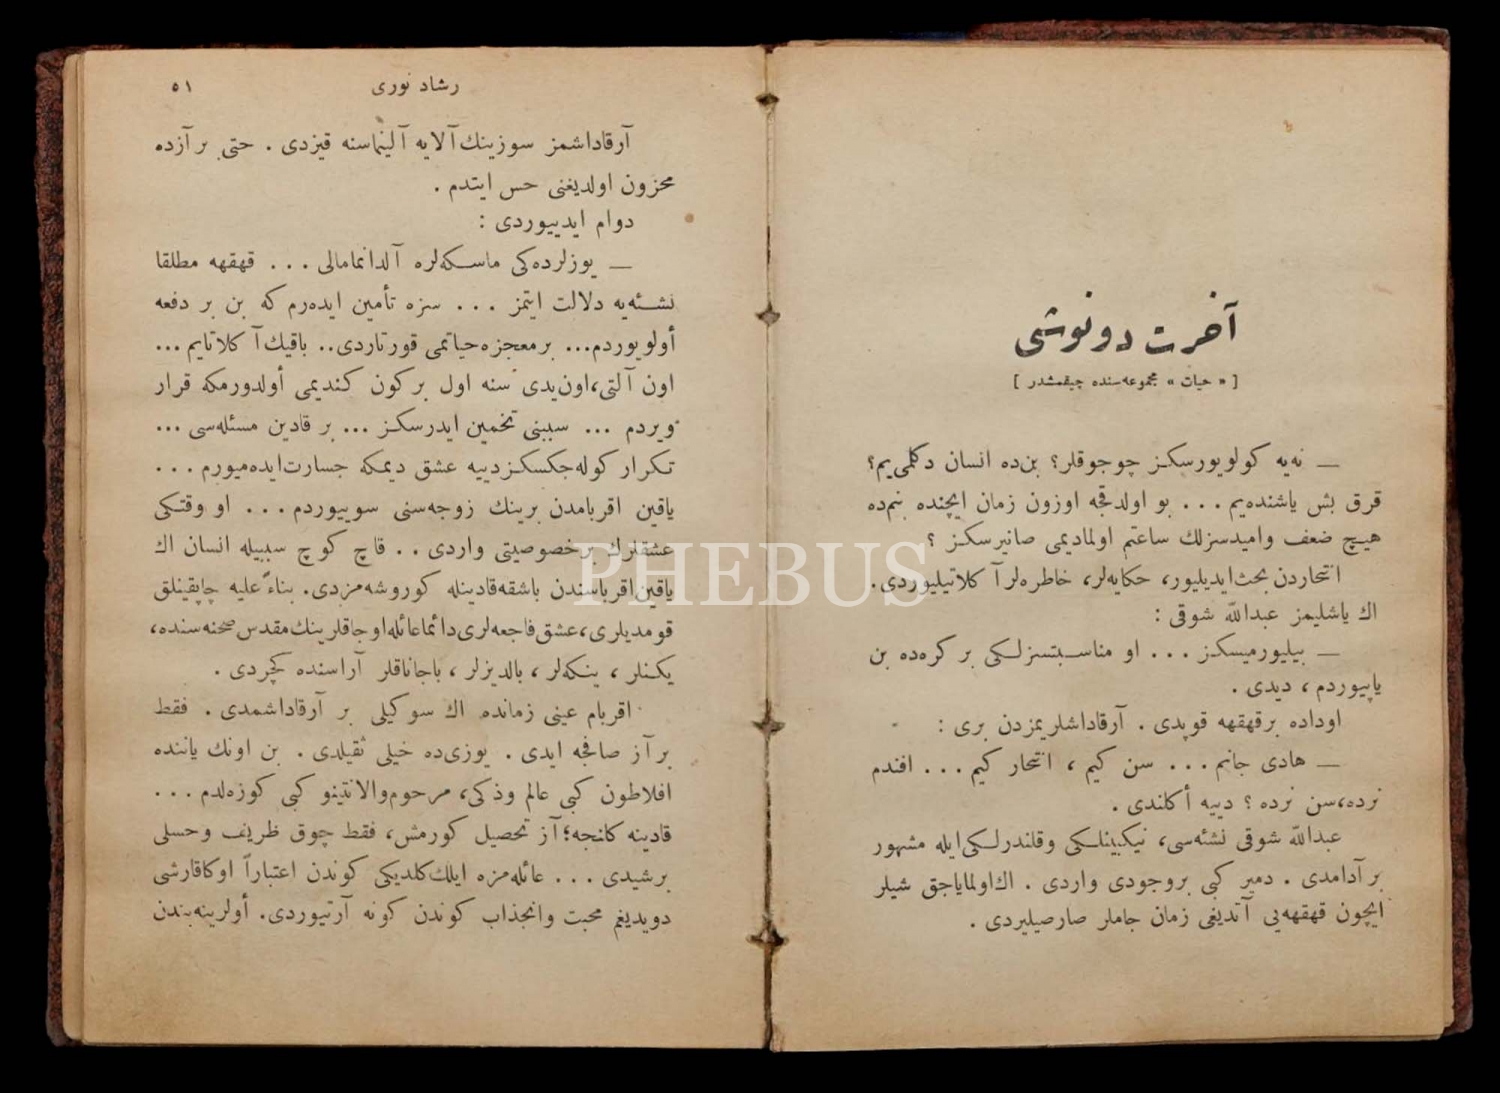 آخرت دونوشی
[ « حیات » مجموعه‌سنده چیقمشدر ]
— نه‌یه کولویورسکز چوجوقلر؟ بن‌ده انسان دکلمی‌یم؟
قرق بش یاشنده‌یم ... بو اولدقجه اوزون زمان ایچنده بنم‌ده
هیچ ضعف وامیدسزلك ساعتم اولمادیمی صانیرسکز ؟
انتحاردن بحث‌ایدیلیور، حکایه‌لر، خاطره‌لرآ کلاتیلیوردی.
اك یاشلیمز عبدالله شوقی :
— بیلیورمیسکز ... او مناسبتسزلکی بر کره‌ده بن
یاپیوردم ، دیدی .
اوداده برقهقهه قوپدی . آرقاداشلریمزدن بری :
— هادی جانم ... سن کیم ، انتحار کیم ... افندم
نرده،سن نرده ؟ دییه أکلندی .
عبدالله شوقی نشئه‌سی، نیکبینلکی وقلندرلکی‌ایله مشهور
برآدامدی . دمیر کبی بروجودی واردی . اك‌اولمایاجق شیلر
ایچون قهقهه‌یی آتدیغی زمان جاملر صارصیلیردی .
رشاد نوری
٥١
آرقاداشمز سوزینك‌آلایه آلینماسنه قیزدی . حتی برآزده
محزون اولدیغنی حس ایتدم .
دوام ایدییوردی :
— یوزلرده‌کی ماسکه‌لره آلدانمامالی ... قهقهه مطلقا
نشئه‌یه دلالت ایتمز ... سزه تأمین ایده‌رم که بن بر دفعه
أولویوردم... برمعجزه‌حیاتمی قورتاردی.. باقیك‌آ کلاتایم ...
اون آلتی،اون‌یدی سنه اول برکون کندیمی أولدورمکه قرار
ویردم ... سببنی تخمین ایدرسکز ... بر قادین مسئله‌سی ...
تکرار کوله‌جکسکزدییه عشق دیمکه جسارت‌ایده‌میورم ...
یاقین اقربامدن برینك زوجه‌سنی سوییوردم ... او وقتکی
عشقلرك برخصوصیتی واردی .. قاچ کوچ سببیله انسان اك
یاقین‌اقرباسندن باشقه‌قادینله کوروشه‌مزدی. بناءً علیه چاپقینلق
قومدیلری،عشق‌فاجعه‌لری‌دائماعائله‌اوجاقلرینك‌مقدس‌صحنه‌سنده،
یکنلر ، ینکه‌لر ، بالدیزلر ، باجاناقلر آراسنده کچردی .
اقربام عینی زمانده اك سوکیلی بر آرقاداشمدی . فقط
برآز صافجه ایدی . یوزی‌ده خیلی ثقیلدی . بن اونك یاننده
افلاطون کبی عالم وذکی، مرحوم‌والانتینو کبی کوزه‌لدم ...
قادینه کلنجه؛آز تحصیل کورمش، فقط چوق ظریف وحسلی
برشیدی ... عائله‌مزه ایلك‌کلدیکی کوندن اعتباراً اوکاقارشی
دویدیغم محبت وانجذاب کوندن کونه آرتیوردی. أولرینه‌بندن
PHEBUS